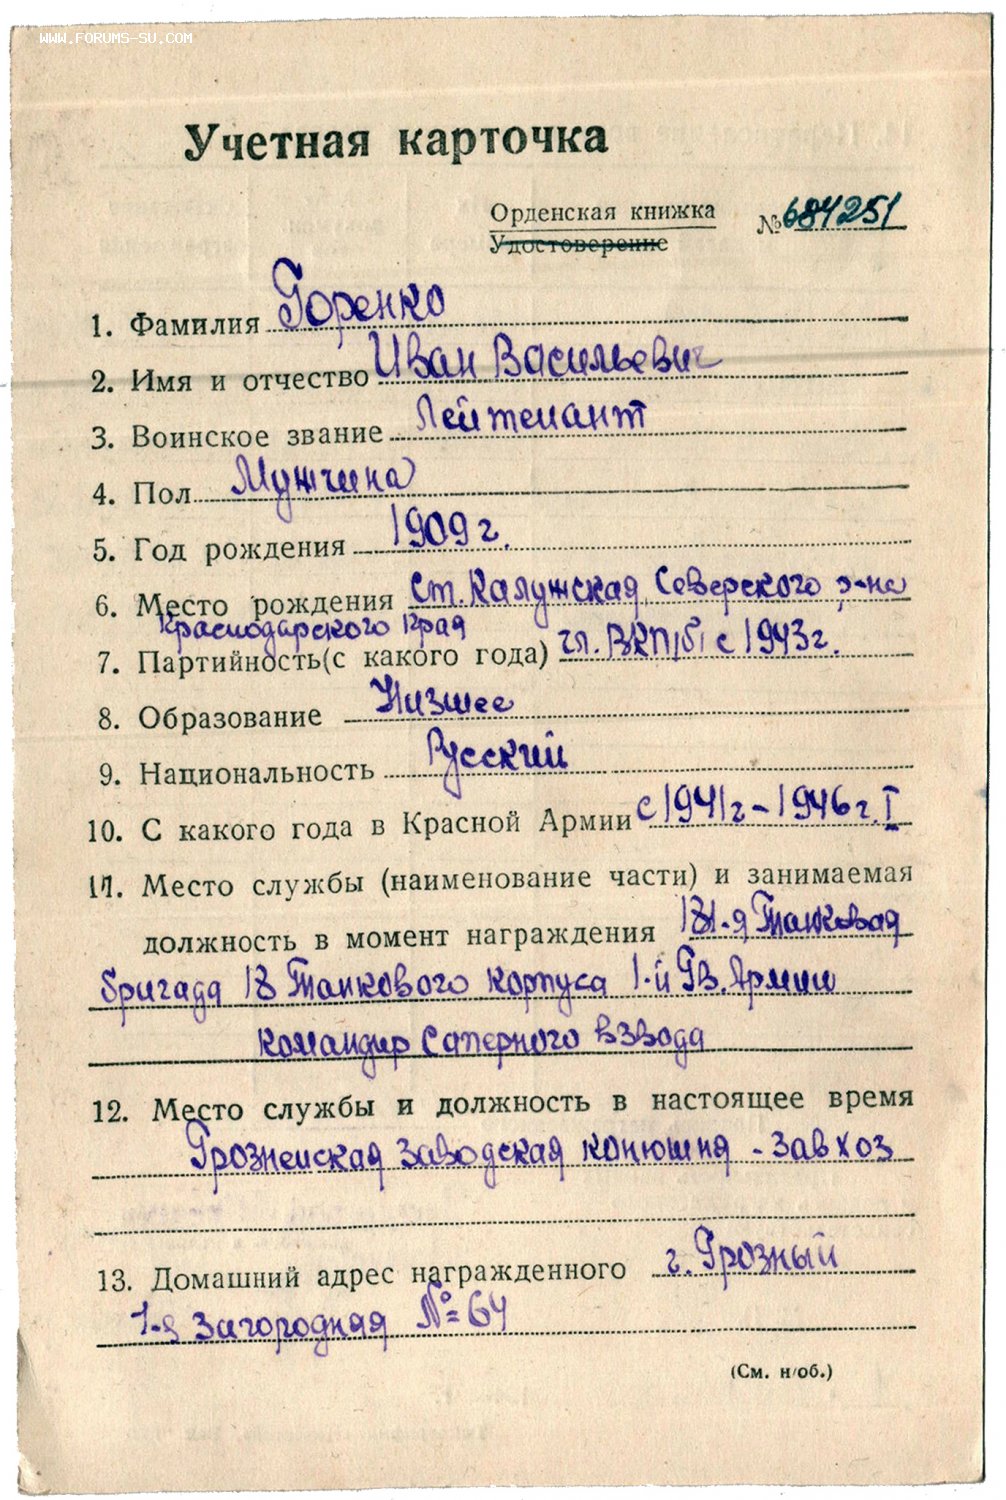 WWW.FORUMS-SU.COM
Учетная карточка
Орденская книжка № 684251
Удостоверение
1. Фамилия Горенко
2. Имя и отчество Иван Васильевич
3. Воинское звание Лейтенант
4. Пол Мужчина
5. Год рождения 1909 г.
6. Место рождения ст. Калужская, Северского р-на
Краснодарского Края
7. Партийность (с какого года) чл. ВКП/б/ с 1943 г.
8. Образование Низшее
9. Национальность Русский
10. С какого года в Красной Армии с 1941 г – 1946 г. I
11. Место службы (наименование части) и занимаемая
должность в момент награждения 181-я Танковая
бригада 18 Танкового корпуса 1-й Гв. Армии
командир Саперного взвода
12. Место службы и должность в настоящее время
Грозненская заводская конюшня - завхоз
13. Домашний адрес награжденного г. Грозный
1-я Загородная № 64
(См. н/об.)